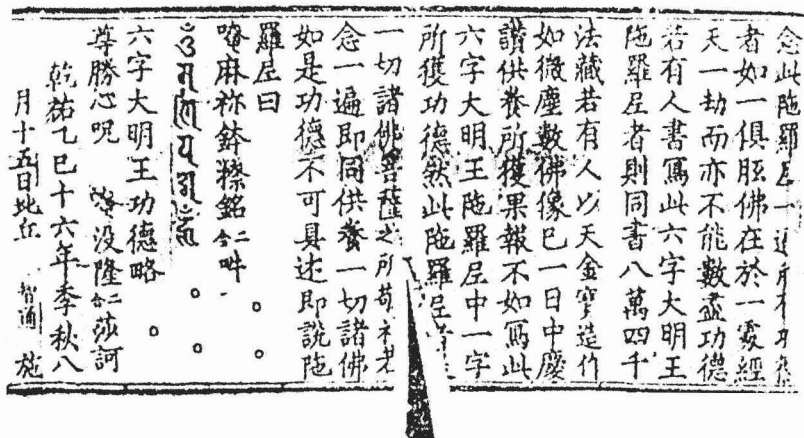 念此陁羅尼一遍所有功德
者如一俱胝佛在於一處經
天一劫而亦不能數盡功德
若有人書寫此六字大明王
陁羅尼者則同書八萬四千
法藏若有人以天金寶造作
如微塵數佛像已一日中慶
讚供養所獲果報不如寫此
六字大明王陁羅尼中一字
所獲功德然此陁羅尼
一切諸佛菩薩之所
念一遍即同供養一切諸佛
如是功德不可具述即說陁
羅尼曰
唵麻祢鉢銘二合吽
六字大明王功德略
尊勝心呪 唵没隆二合莎訶
乾祐乙巳十六年季秋八
月十五日比丘 智通 施